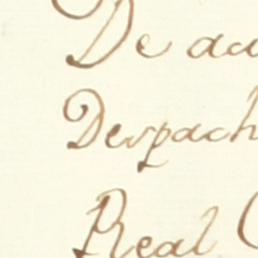 De ac
Despach
Real C